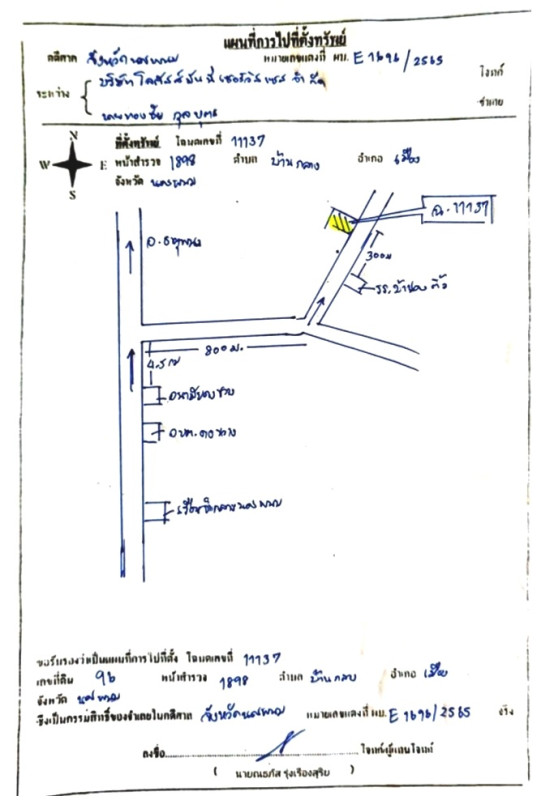 แผนที่การไปที่ตั้งทรัพย์
คดีศาล จังหวัดนครพนม หมายเลขแดงที่ ผบ. E1696/2565
ระหว่าง บริษัท จำกัด โจทก์
จำเลย
N
W E
S
ที่ตั้งทรัพย์ โฉนดเลขที่ 11137
หน้าสำรวจ 1898 ตำบล บ้านกลาง อำเภอ เมือง
จังหวัด นครพนม
ฉ. 11137
300ม
รร.
800ม.
4.5
เรือนจำกลางนครพนม
ขอรับรองว่าเป็นแผนที่การไปที่ตั้ง โฉนดเลขที่ 11137
เลขที่ดิน 96 หน้าสำรวจ 1898 ตำบล บ้านกลาง อำเภอ เมือง
จังหวัด นครพนม
ซึ่งเป็นกรรมสิทธิ์ของจำเลยในคดีศาล จังหวัดนครพนม หมายเลขแดงที่ ผบ. E1696/2565 จริง
ลงชื่อ โจทก์/ผู้แทนโจทก์
( นายณธภัส รุ่งเรืองสุริย )